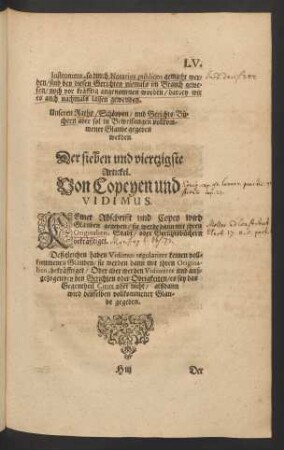 LV.
Instrument, so durch Notarien publicos gemacht wer-
den/ sind bey diesen Gerichten niemals im Brauch gewe-
sen/ noch vor kräfftig angenommen worden/ darbey wir
es auch nachmals lassen gewenden.
Unseren Räthe/ Schöppen/ und Gerichts Bü-
chern aber sol in Beweisungen vollkom-
mener Glaube gegeben
werden.
Der sieben und viertzigste
Artickel.
Von Copeyen und
VIDIMUS.
Keiner Abschrifft und Copey wird
Glauben gegeben/ sie werde dann mit ihren
Originalien, Stadt/ oder Gerichtsbüchern
bekräfftiget.
Deßgleichen haben Vidimus regulariter keinen voll-
kommenen Glauben/ sie werden dann mit ihren Origina-
lien bekräfftiget/ Oder aber werden Vidimirt und auß-
gezogen von den Gerichten oder Obrigkeiten/ es sey das
Gegentheil Citirt, oder nicht/ alsdann
wird denselben vollkommener Glau-
be gegeben.
H iij Der